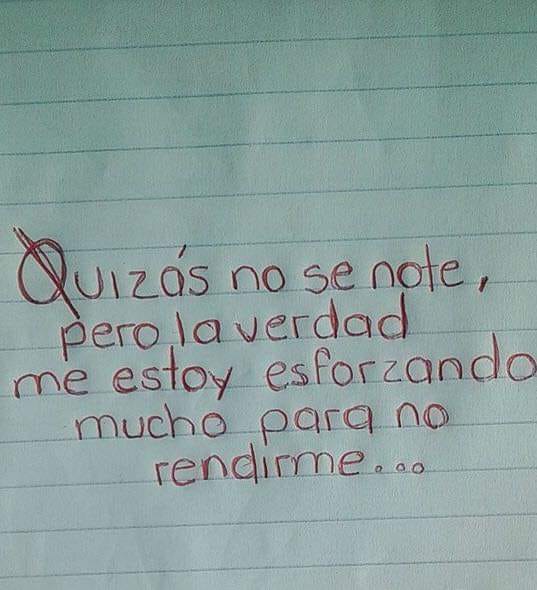 Quizás no se note,
pero la verdad
me estoy esforzando
mucho para no
rendirme...